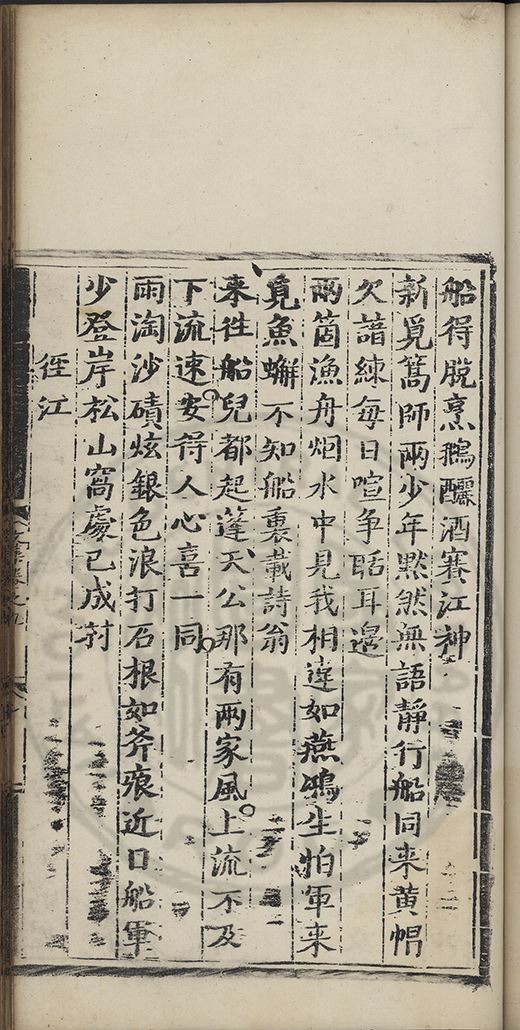 船得脫烹鵝釃酒賽江神
新覓篙師兩少年黙然無語靜行船同来黄帽
欠諳練每日喧争聒耳邊
兩箇漁舟烟水中見我相違如燕鴻生怕軍来
覓魚蠏不知船裏載詩翁
来往船兒都起蓬天公那有兩家風上流不及
下流速安得人心喜一同
雨淘沙磧炫銀色浪打石根如斧痕近口船軍
少登岸松山窩處已成村
徑江